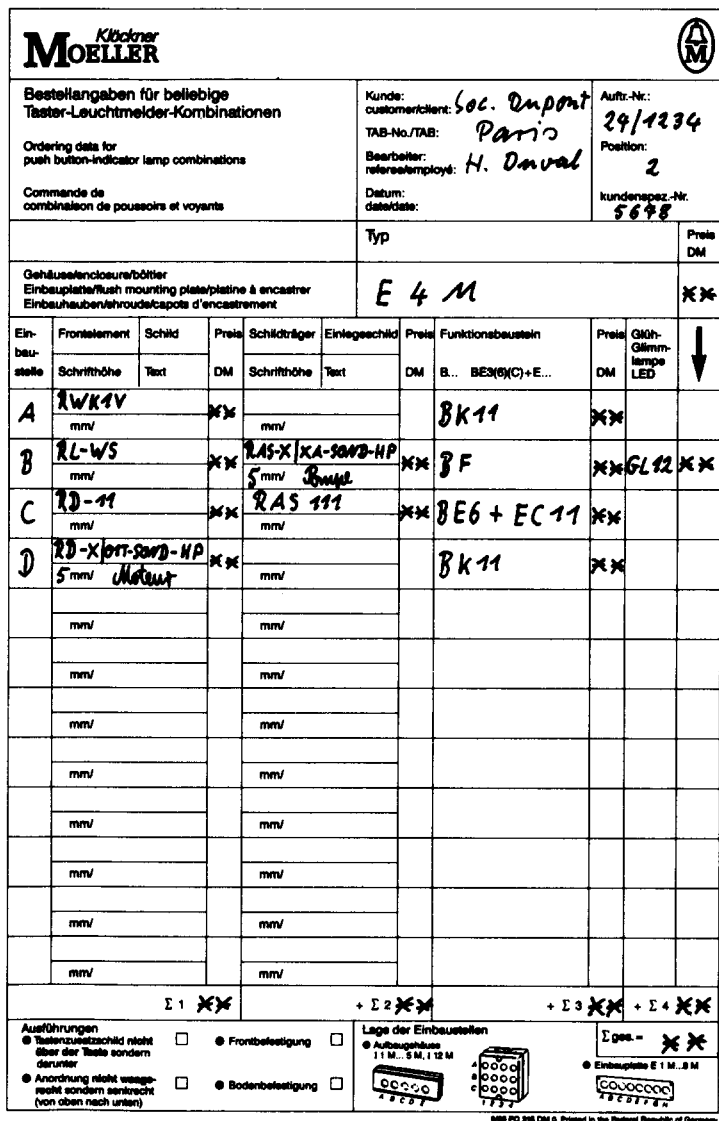 Klöckner
MOELLER
M
Bestellangaben für beliebige
Taster-Leuchtmelder-Kombinationen
Ordering data for
push button-indicator lamp combinations
Commande de
combinaison de poussoirs et voyants
Kunde:
customer/client: Soc. Dupont
TAB-No./TAB: Paris
Bearbeiter:
referee/employé: H. Duval
Datum:
date/date:
Auftr.-Nr.:
24/1234
Position:
2
kundenspez.-Nr.
5678
Typ
Preis
DM
Gehäuse/enclosure/bôitier
Einbauplatte/flush mounting plate/platine à encastrer
Einbauhauben/shrouds/capots d'encastrement
E 4 M
**
Ein-
bau-
stelle
Frontelement Schild Preis Schildträger Einlegeschild Preis Funktionsbaustein Preis Glüh-
Glimm-
lampe
LED
Schrifthöhe Text DM Schrifthöhe Text DM B... BE3(6)(C)+E... DM
A RWK1V ** BK11 **
mm/ mm/
B RL-WS ** RAS-X/XA-SOND-HP ** BF ** GL12 **
mm/ 5 mm/ Pompe
C RD-11 ** RAS 111 ** BE6 + EC11 **
mm/ mm/
D RD-X/OTT-SOND-HP ** BK11 **
5 mm/ Moteur mm/
mm/ mm/
mm/ mm/
mm/ mm/
mm/ mm/
mm/ mm/
mm/ mm/
mm/ mm/
mm/ mm/
Σ 1 ** + Σ 2 ** + Σ 3 ** + Σ 4 **
Ausführungen
Tastenzusatzschild nicht
über der Taste sondern
darunter
Anordnung nicht waage-
recht sondern senkrecht
(von oben nach unten)
Frontbefestigung
Bodenbefestigung
Lage der Einbaustellen
Aufbaugehäuse
I 1 M... 5 M, I 12 M
A B C D E
A
B
C
1 2 3 4
Σ ges. = **
Einbauplatte E 1 M...8 M
A B C D E F G H
Printed in the Federal Republic of Germany